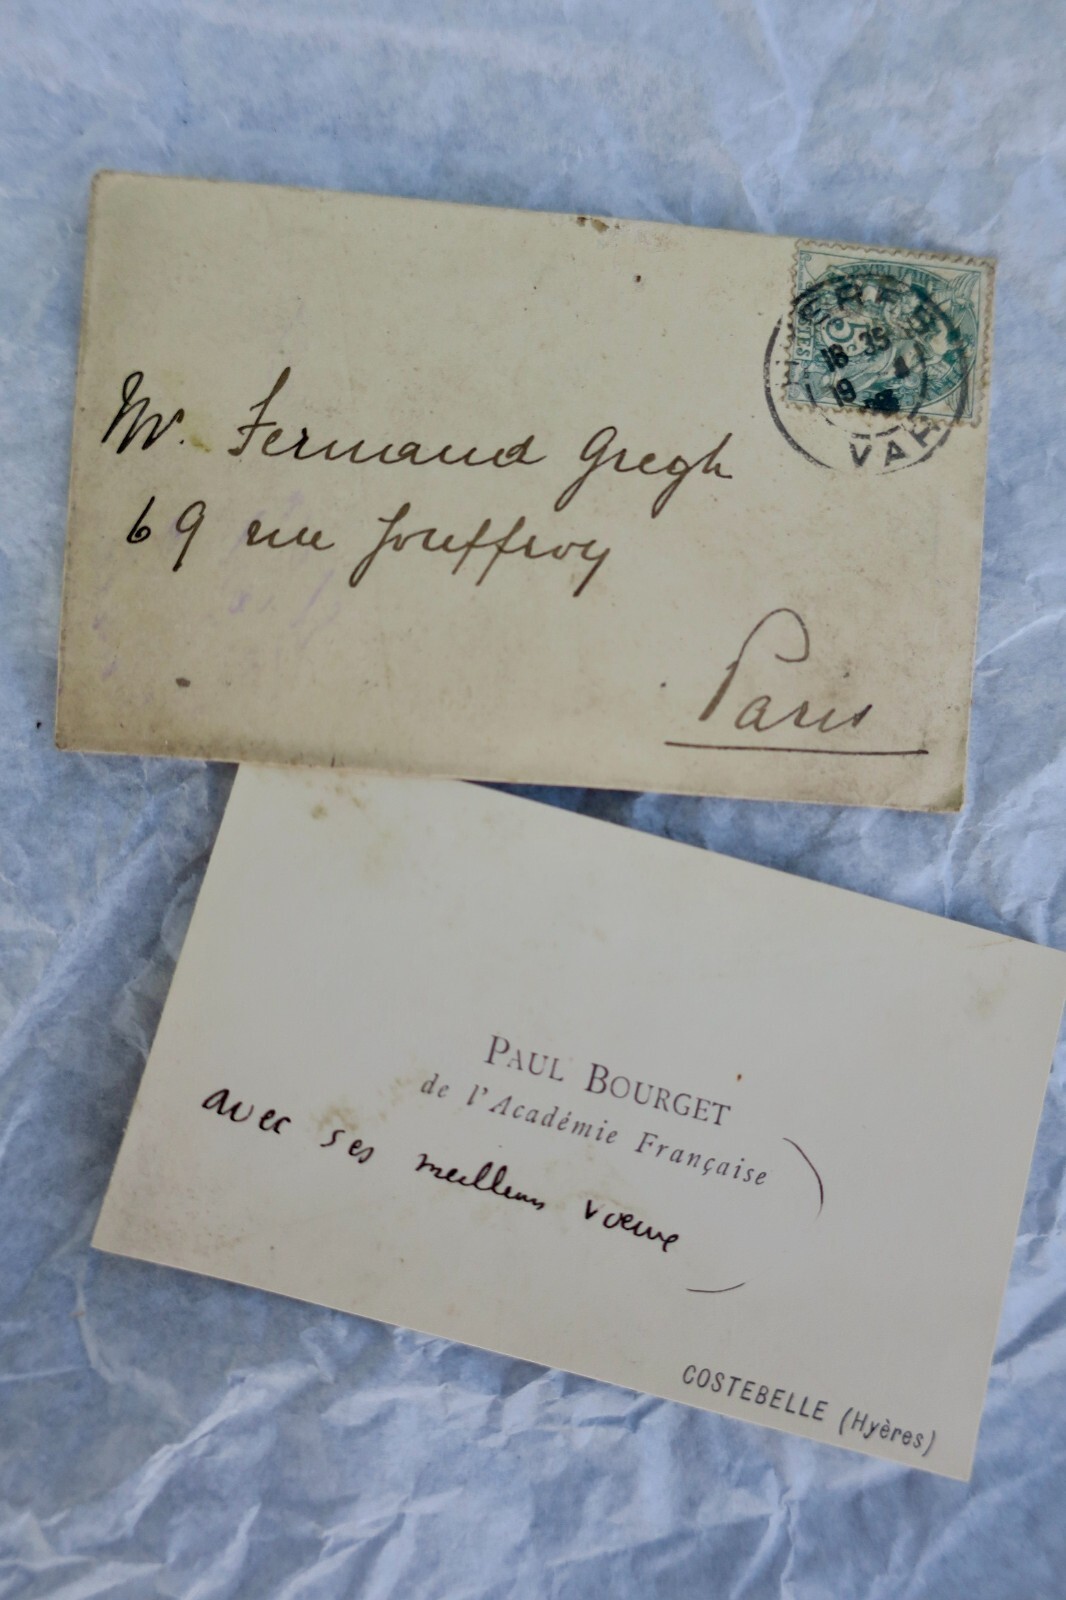 Mr. Fernand Gregh
69 rue Jouffroy
Paris
RÉPUBLIQUE
5
POSTES
HYERES
18 35
19
VAR
PAUL BOURGET
de l'Académie Française
avec ses meilleurs vœux
COSTEBELLE (Hyères)